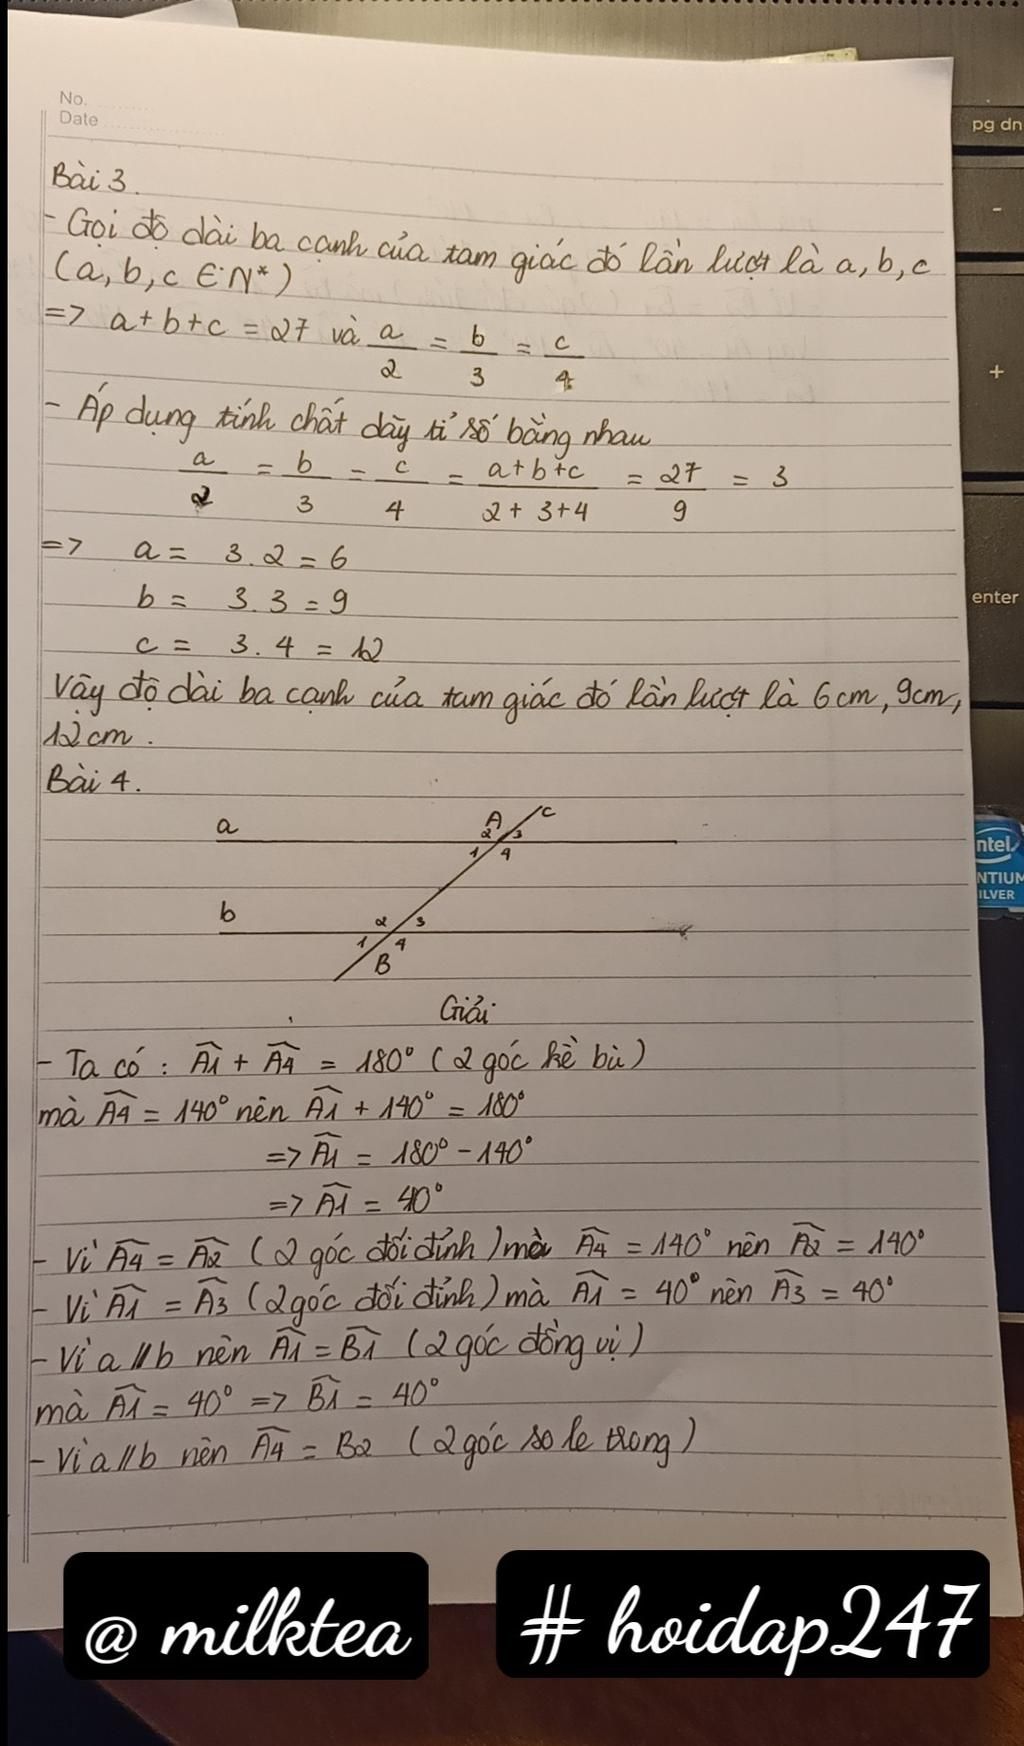 No.
Date
pg dn
-
+
enter
intel
NTIUM
ILVER
Bài 3.
- Gọi độ dài ba cạnh của tam giác đó lần lượt là a, b, c
(a, b, c ∈ N*)
=> a+b+c = 27 và a/2 = b/3 = c/4
- Áp dụng tính chất dãy tỉ số bằng nhau
a/2 = b/3 = c/4 = (a+b+c)/(2+3+4) = 27/9 = 3
=> a = 3.2 = 6
b = 3.3 = 9
c = 3.4 = 12
Vậy độ dài ba cạnh của tam giác đó lần lượt là 6cm, 9cm,
12cm.
Bài 4.
A c
a 2 3
1 4
b 2 3
1 4
B
Giải
- Ta có : Â1 + Â4 = 180° (2 góc kề bù)
mà Â4 = 140° nên Â1 + 140° = 180°
=> Â1 = 180° - 140°
=> Â1 = 40°
- Vì Â4 = Â2 (2 góc đối đỉnh) mà Â4 = 140° nên Â2 = 140°
- Vì Â1 = Â3 (2 góc đối đỉnh) mà Â1 = 40° nên Â3 = 40°
- Vì a // b nên Â1 = B̂1 (2 góc đồng vị)
mà Â1 = 40° => B̂1 = 40°
- Vì a // b nên Â4 = B2 (2 góc so le trong)
@ milktea # hoidap247